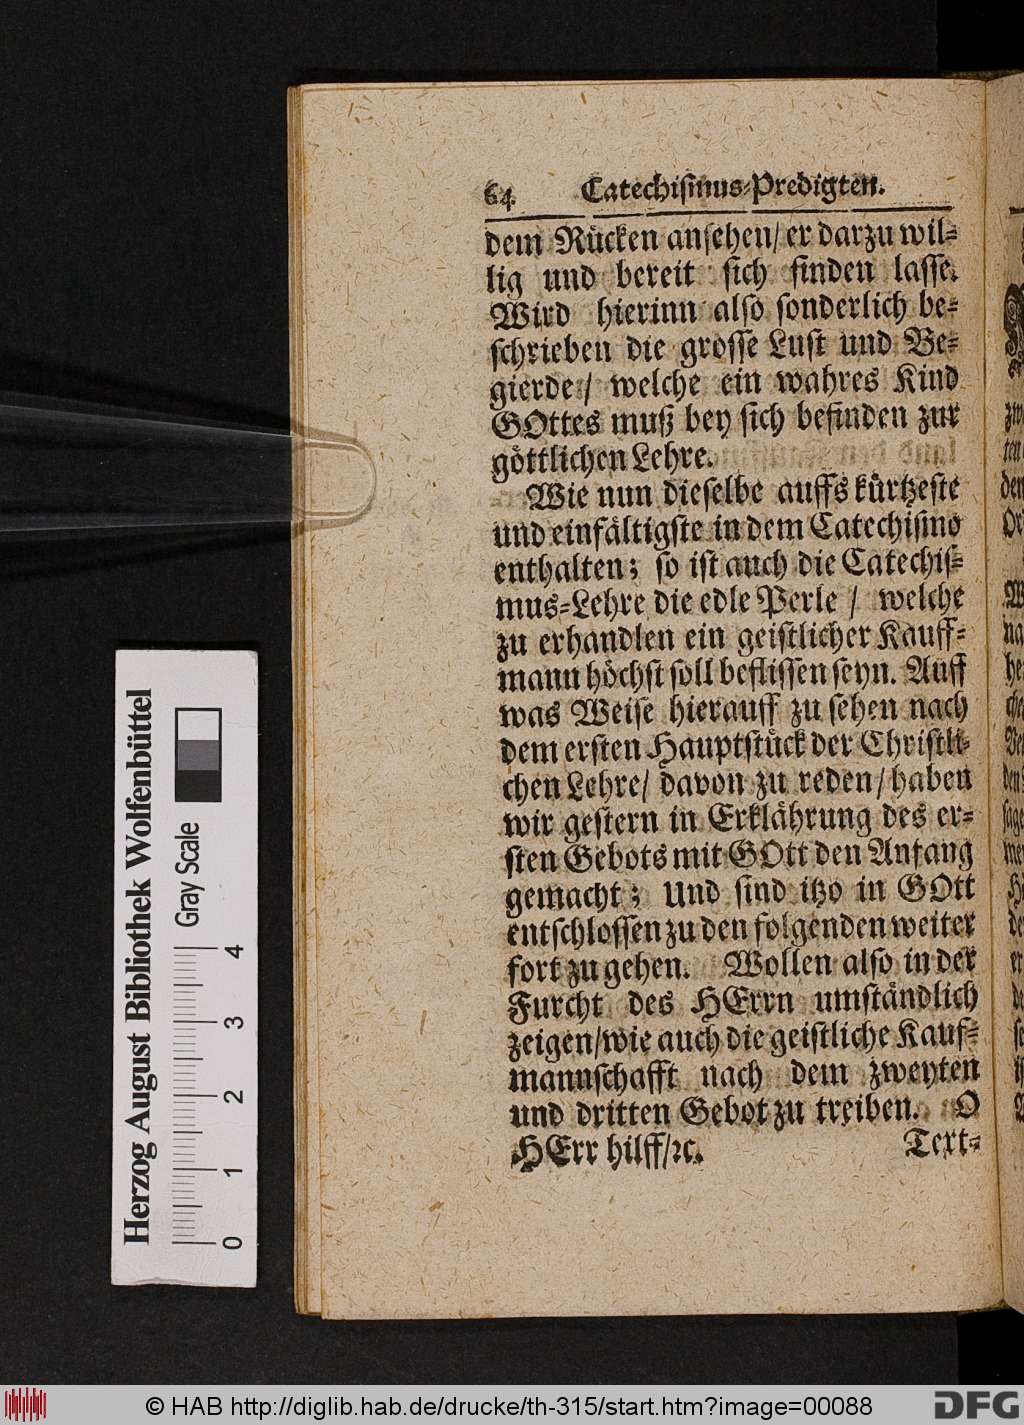 64 Catechismus-Predigten.
dem Rücken ansehen/ er darzu wil-
lig und bereit sich finden lasse.
Wird hierinn also sonderlich be-
schrieben die grosse Lust und Be-
gierde/ welche ein wahres Kind
GOttes muß bey sich befinden zur
göttlichen Lehre.
Wie nun dieselbe auffs kürtzeste
und einfältigste in dem Catechismo
enthalten; so ist auch die Catechis-
mus-Lehre die edle Perle / welche
zu erhandlen ein geistlicher Kauff-
mann höchst soll beflissen seyn. Auff
was Weise hierauff zu sehen nach
dem ersten Hauptstück der Christli-
chen Lehre/ davon zu reden/ haben
wir gestern in Erklährung des er-
sten Gebots mit GOtt den Anfang
gemacht; Und sind itzo in GOtt
entschlossen zu den folgenden weiter
fort zu gehen. Wollen also in der
Furcht des HErrn umständlich
zeigen/ wie auch die geistliche Kauf-
mannschafft nach dem zweyten
und dritten Gebot zu treiben. O
HErr hilff/ ꝛc. Text-
Herzog August Bibliothek Wolfenbüttel
Gray Scale
0 1 2 3 4
© HAB http://diglib.hab.de/drucke/th-315/start.htm?image=00088
DFG